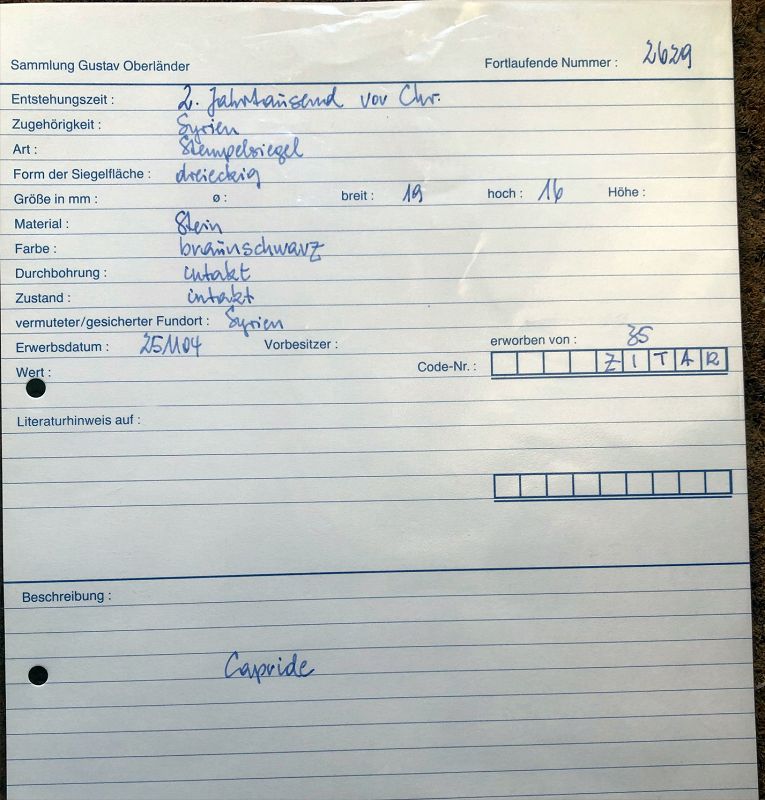 Sammlung Gustav Oberländer Fortlaufende Nummer : 2629
Entstehungszeit : 2. Jahrtausend vor Chr.
Zugehörigkeit : Syrien
Art : Stempelsiegel
Form der Siegelfläche : dreieckig
Größe in mm : ø : breit : 19 hoch : 16 Höhe :
Material : Stein
Farbe : braunschwarz
Durchbohrung : intakt
Zustand : intakt
vermuteter/gesicherter Fundort : Syrien
Erwerbsdatum : Vorbesitzer : erworben von : 35
Wert : Code-Nr. : ZITAR
Literaturhinweis auf :
Beschreibung :
Capride